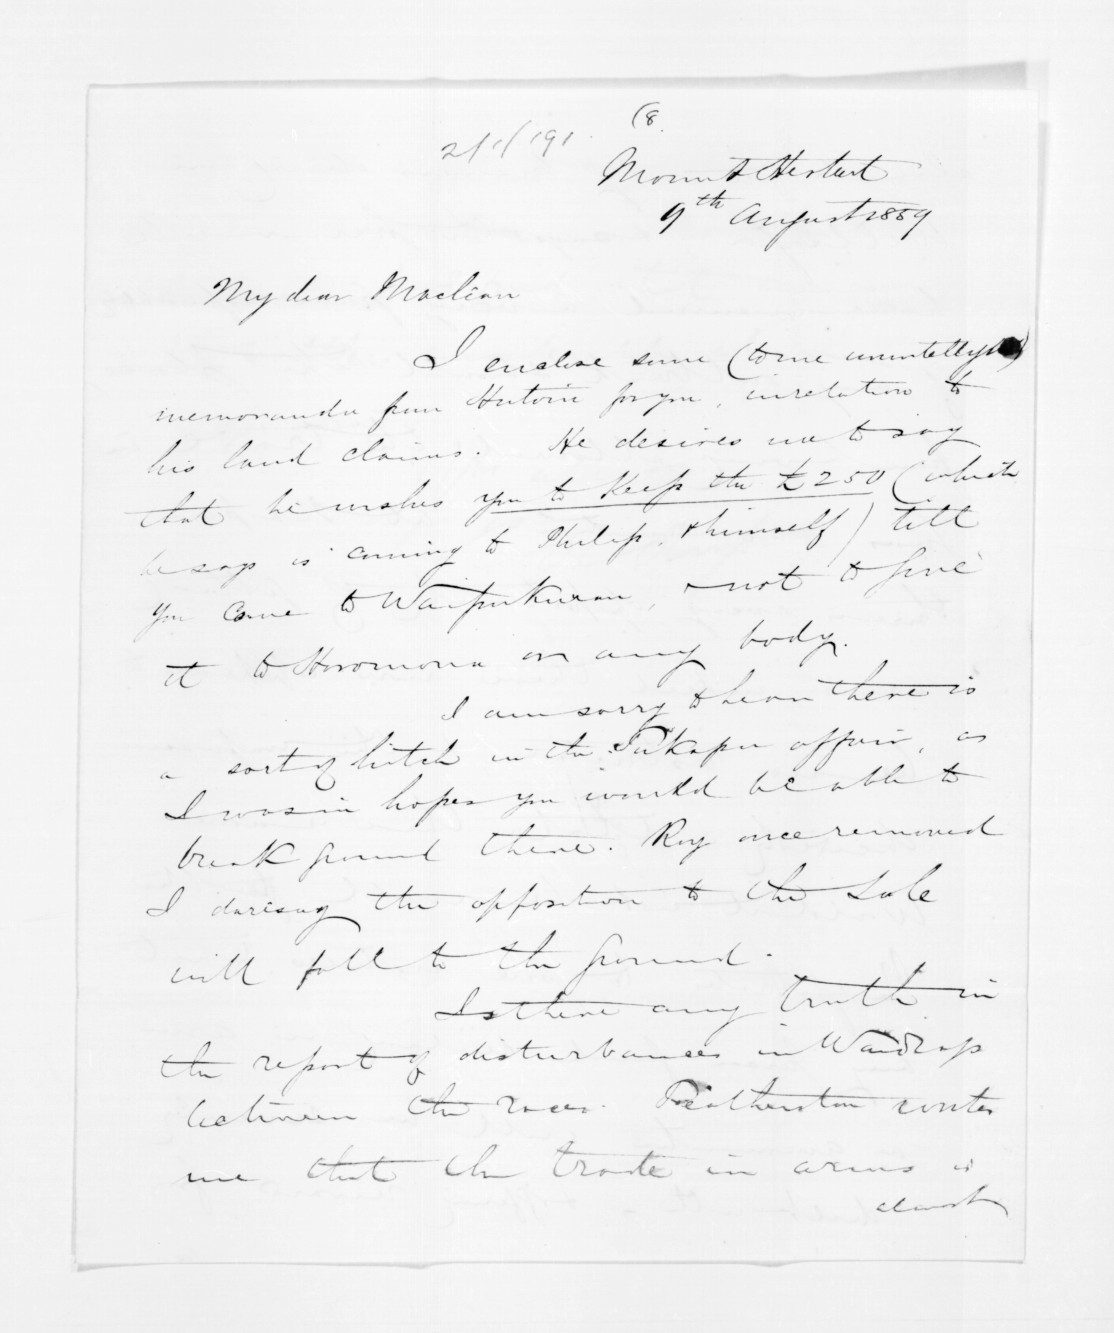 (8.
2/1/191.
Mount Herbert
9th August 1859
My dear Maclean
I enclose some (to me unintelligible)
memoranda from Hutoin for you, in relation to
his land claims. He desires me to say
that he wishes you to keep the £250 (which
he says is coming to Philip, & himself) till
you come to Waipukurau, & not to give
it to Horomona or any body.
I am sorry to hear there is
a sort of hitch in the affair, as
I was in hopes you would be able to
break ground there. Roy once removed
I daresay the opposition to the sale
will fall to the ground.
Is there any truth in
the report of disturbances in Waidraps
between the races. Featherston writes
me that the trade in arms is
almost